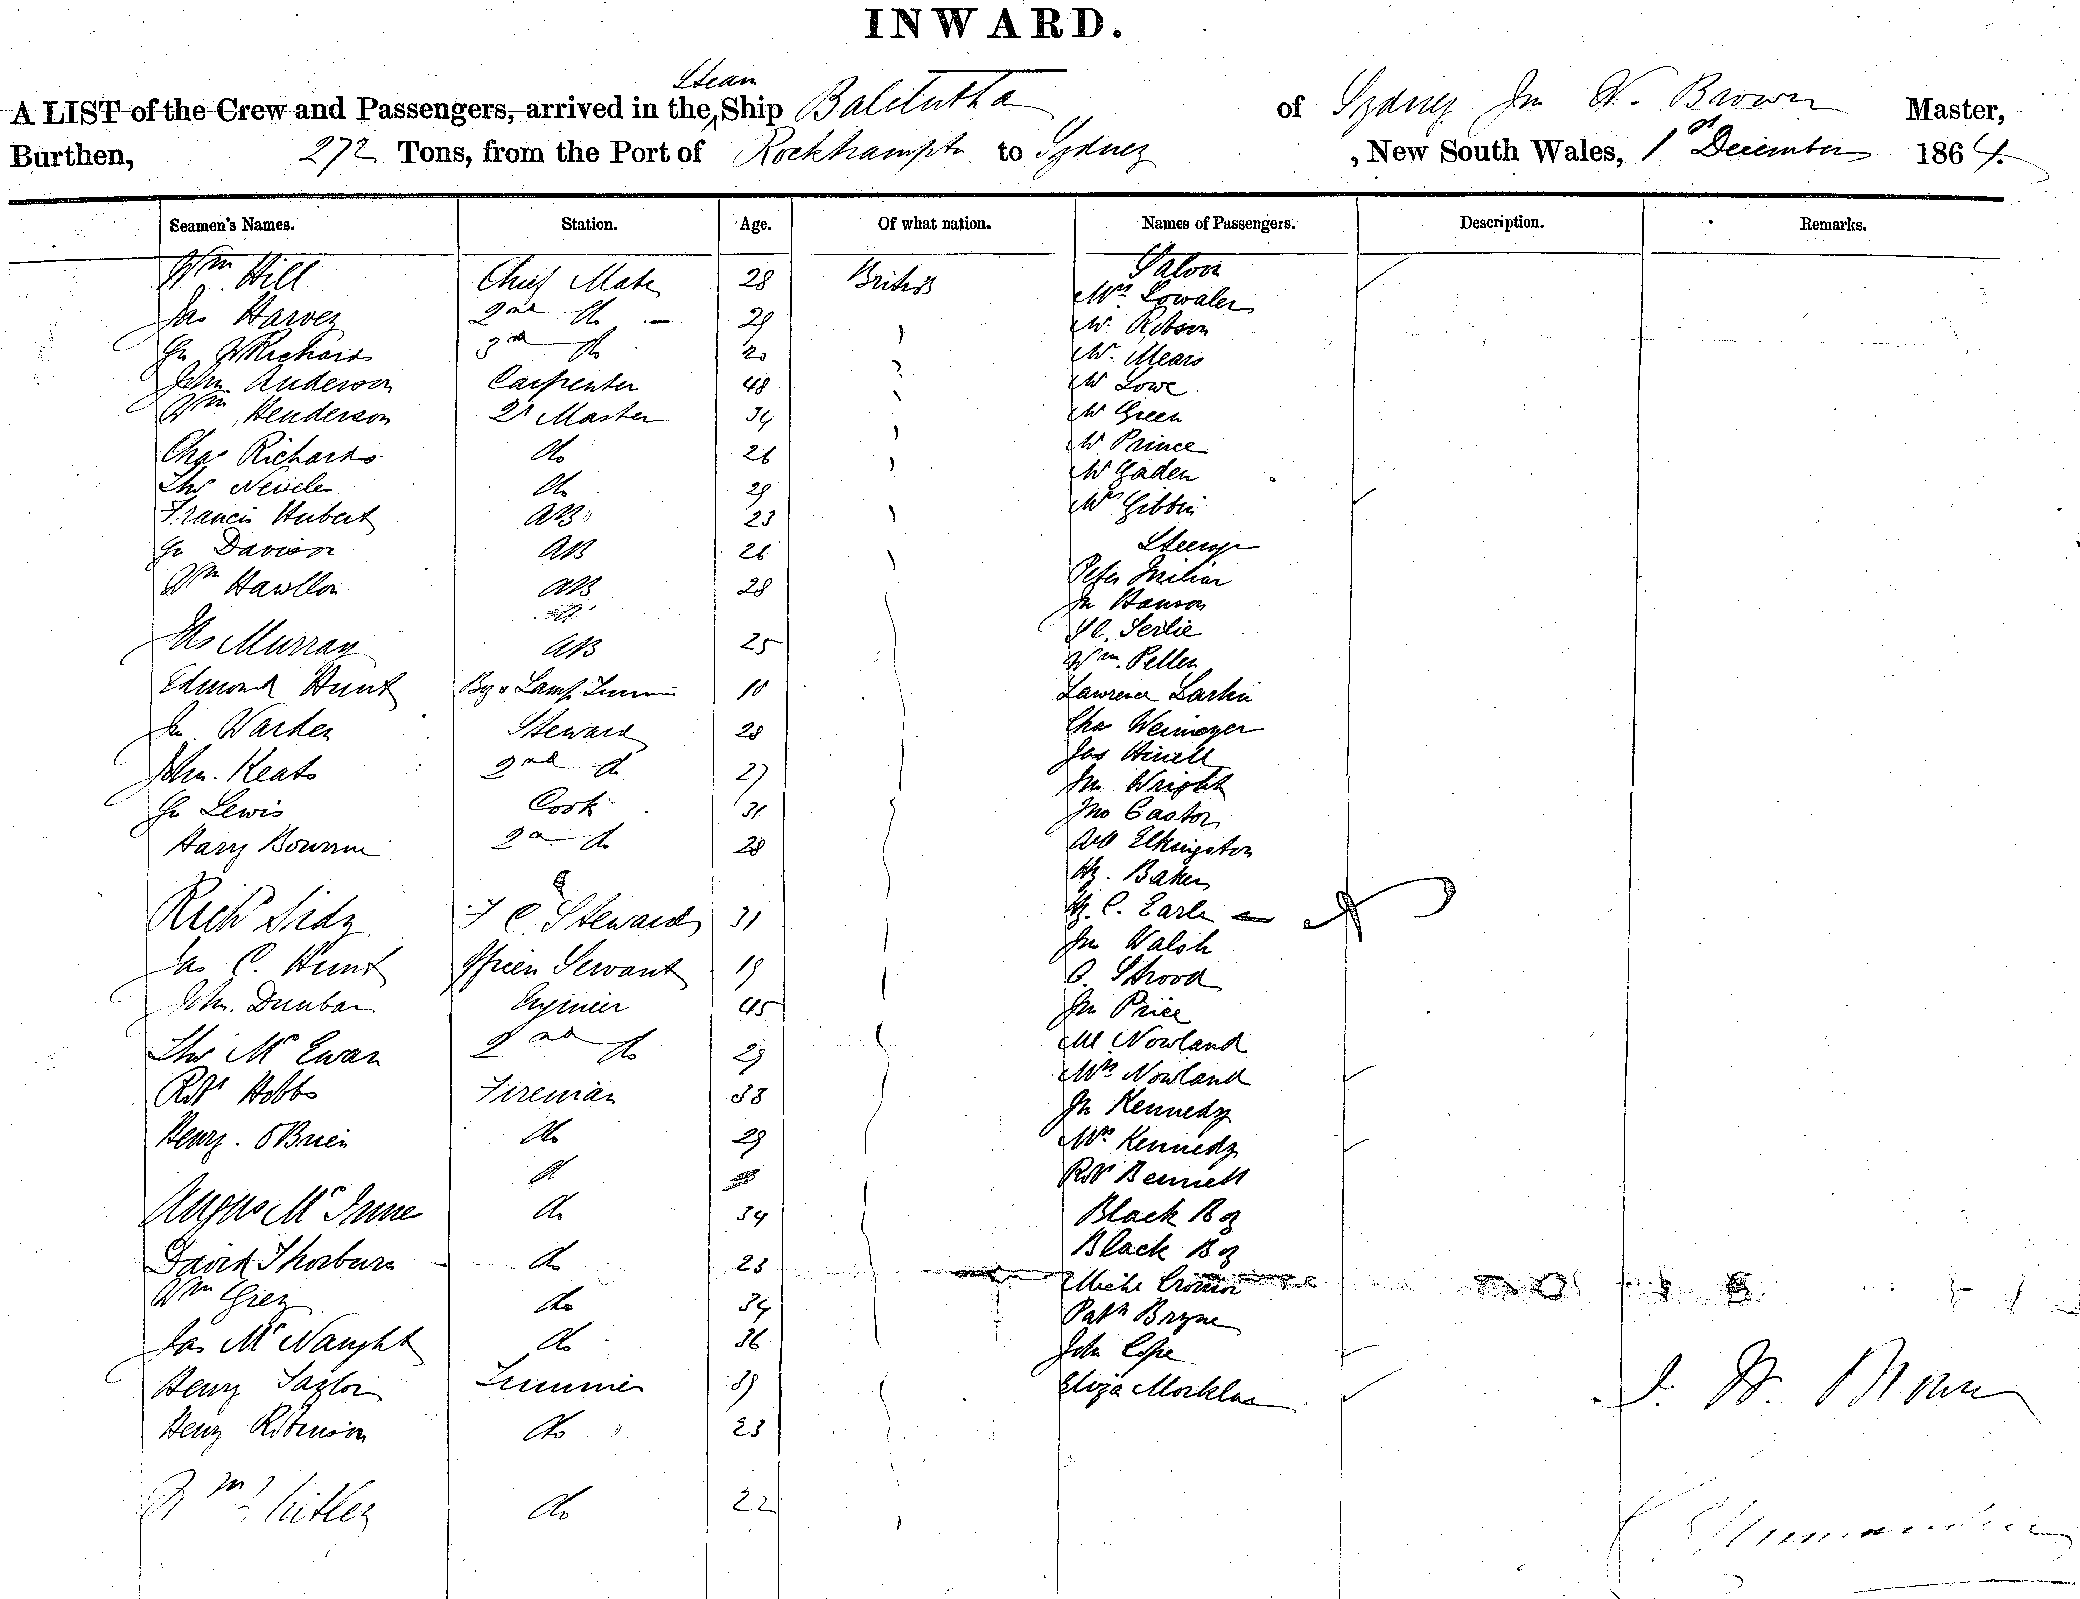 INWARD.
Steam
A LIST of the Crew and Passengers, arrived in the Ship Balclutha of Sydney Jn W. Brown Master,
Burthen, 272 Tons, from the Port of Rockhampton to Sydney, New South Wales, 1st December 1864.
Seamen's Names. Station. Age. Of what nation. Names of Passengers. Description. Remarks.
Saloon
Wm Hill Chief Mate 28 British
Mrs
Jas Harvey 2nd do 29
Mr Robson
3rd do 20
Mr. Mears
John Anderson Carpenter 48
Mr Lowe
Wm Henderson Qr Master 34
Mr Green
Chas Richards do 26
Mr Prince
Thos do 29
Mr Gaden
Francis Hubert AB 23
Mrs
Davison AB 26
Steerage
Wm AB 28
Peter
Jn Hanson
Jas Murray AB 25
Wm.
Edmond Hunt Boy & Lamp 18
Lawrence Larkin
Jn Warden Steward 28
Chas
John Keats 2nd do 27
Jas
Jn Wright
Lewis Cook 31
Jno Castor
Harry Bourne 2nd do 28
Elkington
Hy. Baker
Richd Steward 31
Hy. C. Earle
Jn Walsh
Jas C. Hunt Officers Servant 19
Strood
John Dunbar Engineer 45
Jn Price
Thos McEwan 2nd do 29
Nowland
Mrs Nowland
Robt Hobbs Fireman 33
Jn Kennedy
Henry O'Brien do 29
Mrs Kennedy
do
Robt Bennett
Angus McInnes do 34
Black Boy
David Thorburn do 23
Black Boy
Wm Grey do 34
Patk Bryne
Jas McNaught do 36
John Cope
Henry Taylor Trimmer 39
Eliza
J. W. Brown
Henry Robinson do 23
Wm do 22
Commander